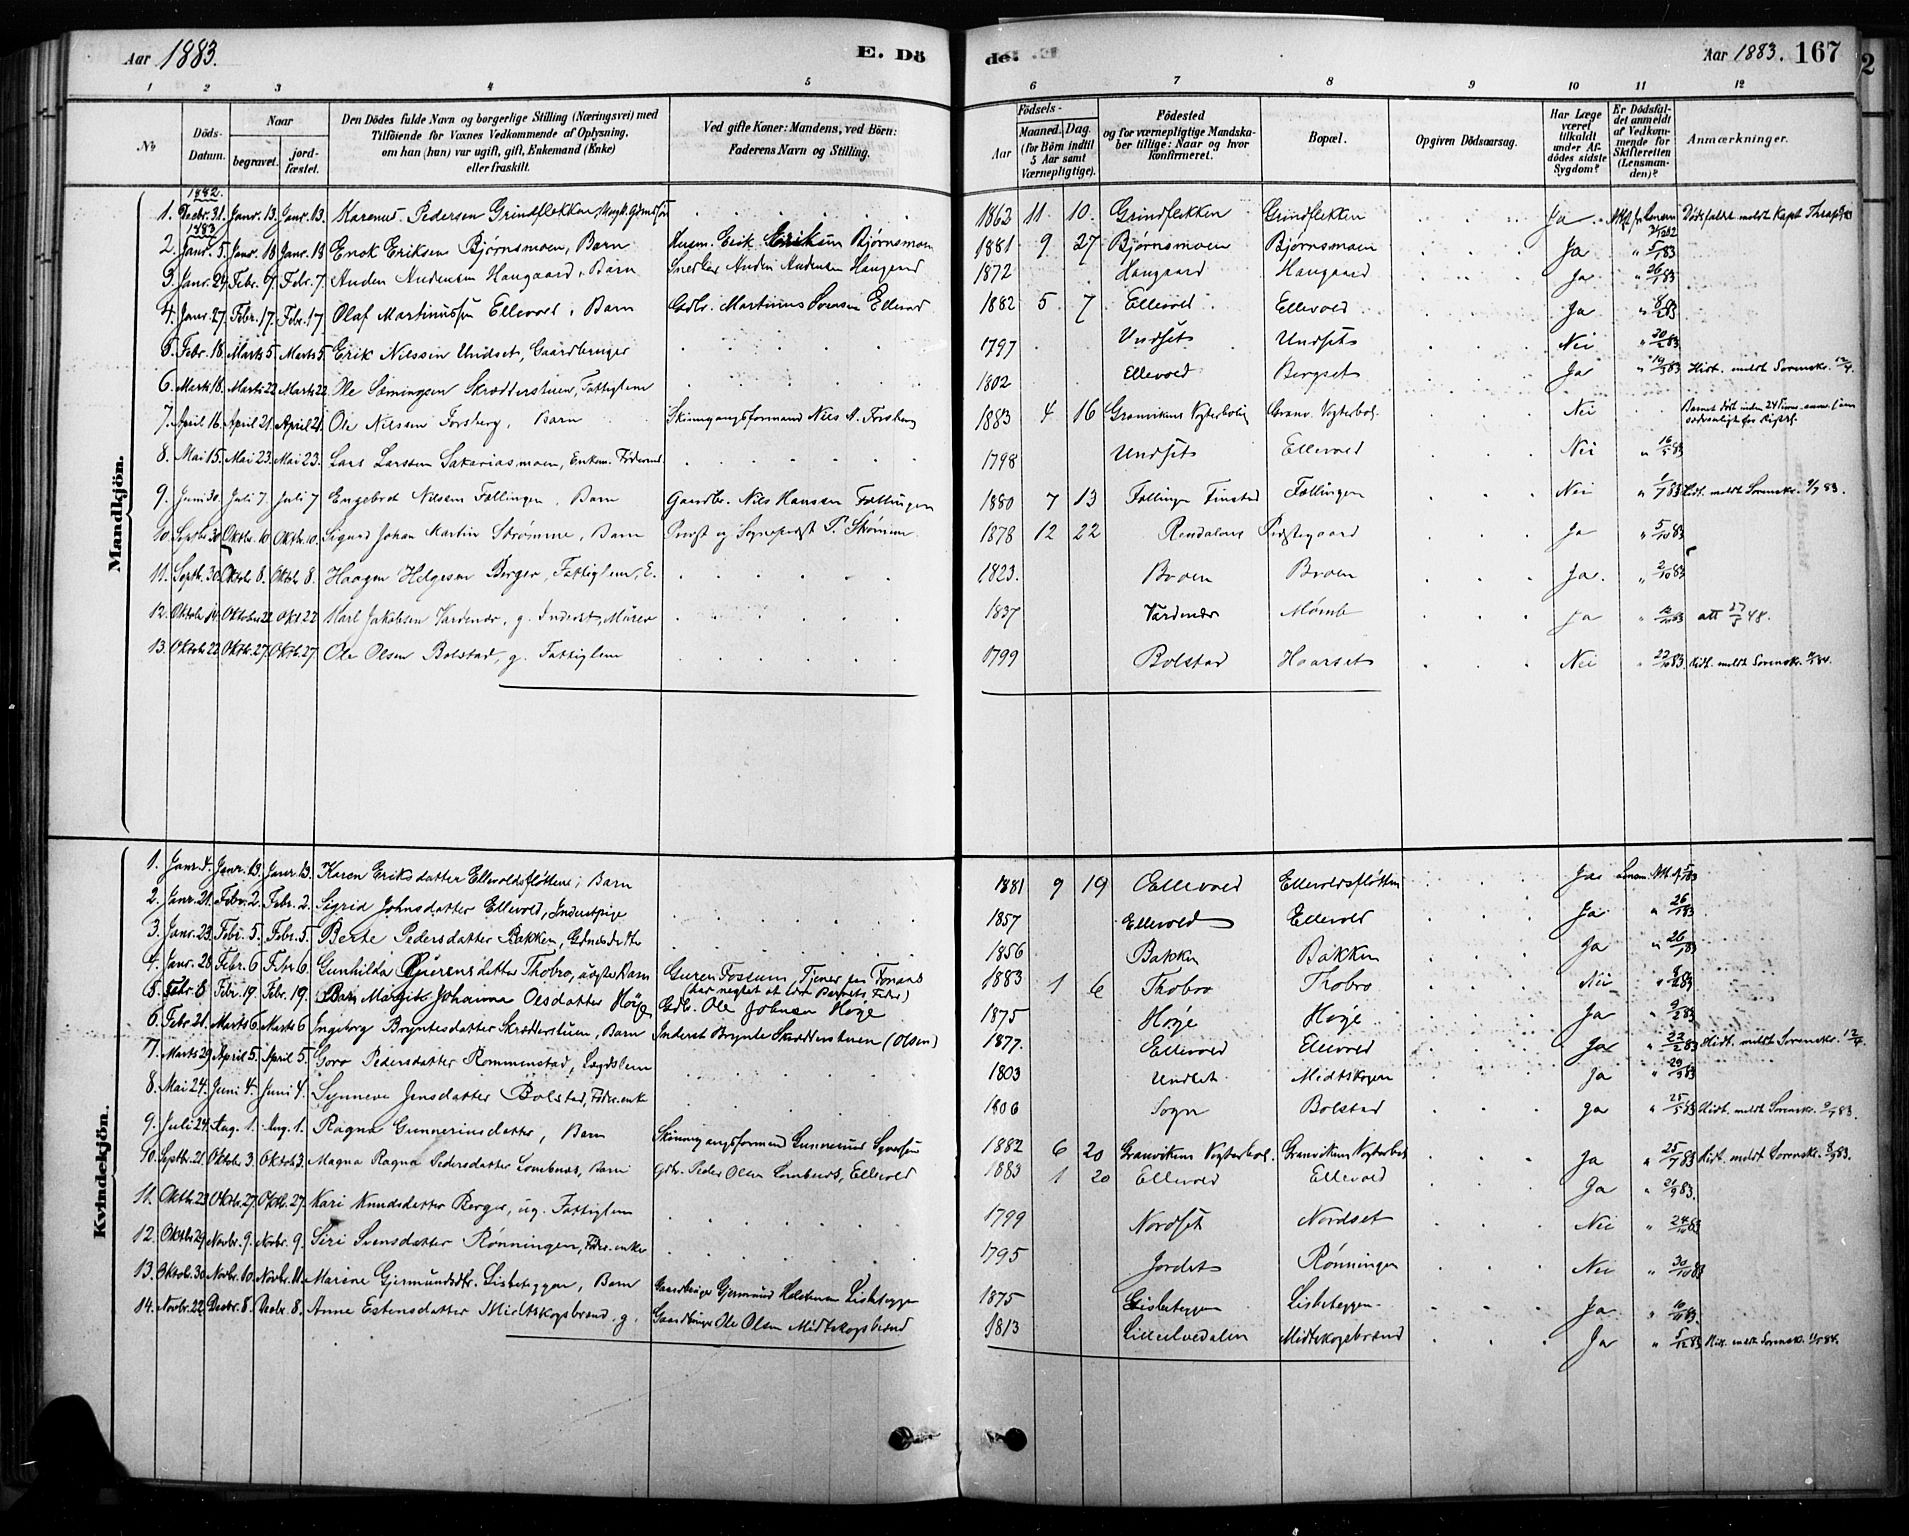 Aar 1883. E. Dö de. Aar 1883. 167
1 2 3 4 5 6 7 8 9 10 11 12
No Döds-Datum. Naar begravet. jordfæstet. Den Dödes fulde Navn og borgerlige Stilling (Næringsvei) med Tilföiende for Voxnes Vedkommende af Oplysning, om han (hun) var ugift, gift, Enkemand (Enke) eller fraskilt. Ved gifte Koner: Mandens, ved Börn: Faderens Navn og Stilling. Födsels- Aar Maaned. Dag. (for Börn indtil 5 Aar samt Værnepligtige). Födested og for værnepligtige Mandskaber tillige: Naar og hvor konfirmeret. Bopæl. Opgiven Dödsaarsag. Har Læge været tilkaldt under Afdödes sidste Sygdom? Er Dödsfaldet anmeldt af Vedkommende for Skifteretten (Lensmanden)? Anmærkninger.
Mandkjön.
1882.
1. Decbr. 31. Janr. 13. Janr. 13. Karenus Pedersen Grindflekken, Ungk. Gdmssøn 1862 11 10. Grindflekken Grindflekken Ja
1883
2. Janr. 5. Janr. 18 Janr. 18 Enok Eriksen Bjørnsmoen, Barn Husm. Erik Eriksen Bjørnsmoen 1881 9 27 Bjørnsmoen Bjørnsmoen Ja " 5/1 83
3. Janr. 29. Febr. 7. Febr. 7. Anden Andensen Haugaard, Barn Snedker Anden Andensen Haugaard 1872 Haugaard Haugaard Ja " 26/1 83
4. Janr. 27. Febr. 17. Febr. 17 Olaf Martinussen Ellevold, Barn Gdbr. Martinus Svensen Ellevold 1882 5 7 Ellevold Ellevold Ja " 8/2 83
5. Febr. 18. Marts 5. Marts 5. Erik Nilssen Undset, Gaardbruger 1797 Undset Undset Nei " 20/2 83
6. Marts 18. Marts 22 Marts 22 Ole Somingsen Skrædderstuen, Fattiglem 1802 Ellevold Bergset Ja " 19/3 83 Hidt. meldt Sorenskr. 12/4.
7. April 16. April 21. April 21. Ole Nilssen Forsberg, Barn Skinnegangsformand Nils A. Forsberg 1883 4 16 Granvikens Vogterbolig Granv. Vogterbol. Nei Barnet død inden 24 Timer
8. Mai 15. Mai 23. Mai 23. Lars Larssen Sakariasmoen, Enkem. Føderaad 1798 Undset Ellevold Nei " 16/5 83
9. Juni 30. Juli 7. Juli 7 Engebret Nilsen Fællingen, Barn Gaardbr. Nils Hanssen Fællingen 1880 7 13 Fællingen Finstad Fællingen Nei " 1/7 83 Hidt. meldt Sorenskr. 9/7 83.
10. Septbr. 30. Oktbr. 10 Oktbr. 10. Sigurd Johan Martin Strømme, Barn Provst og Sognepræst P. Strømme 1878 12 22 Rendalens Præstegaard Ja " 5/10 83
11. Septbr. 30. Oktbr 8. Oktbr 8. Haagen Helgesen Berger, Fattiglem, E. 1823. Broen Broen Ja. " 2/10 83
12. Oktobr. 14. Oktober 22 Okt 22 Karl Jakobsen Vardenær, g. Inderst, Murer 1837 Vardenær Mømb Ja " 16/10 83 att 27/5 48.
13. Oktobr. 22. Oktb. 27. Oktb. 27 Ole Olsen Bolstad, g. Fattiglem 1799 Bolstad Haarset Nei " 22/10 83. Hidt. meldt Sorenskr.
Kvindekjön.
1. Janr. 4. Janr. 13. Janr. 13. Karen Eriksdatter Ellevoldsfløtten, Barn 1881 9 19 Ellevold Ellevoldsfløtten Ja
2. Janr. 21. Febr. 2. Febr. 2. Sigrid Johnsdatter Ellevold, Inderstpige 1857 Ellevold Ellevold Ja " 26/1 83
3. Janr. 23. Febr. 5. Febr. 5. Berte Pedersdatter Bakken, Gdmdsdatter 1856 Bakken Bakken Ja " 26/1 83
4. Janr. 28 Febr. 6 Febr 6. Gunhilda Gurensdatter Thobro, uægte Barn Guren Fossum, Tjener paa Fonaas (har negtet at være Barnets Fader) 1883 1 6 Thobro Thobro Nei
5. Febr. 8 Febr. 19 Febr. 19 Barn Margit Johanna Olsdatter Høye Gdb. Ole Johnsen Høye 1875 Høye Høye Ja " 9/2 83
6. Febr. 21. Marts 6. Marts 6 Ingeborg Bryntesdatter Skrædderstuen, Barn Inderst Brynte Skrædderstuen (Olsen) 1877. Ellevold Ellevold Ja " 22/2 83 Hidt. meldt Sorenskr. 12/4.
7. Marts 29 April 5. April 5. Goro Pedersdatter Rommenstad, Lægdslem 1803 Undset Midtskogen Ja
8. Mai 24. Juni 4. Juni 4. Synneve Jensdatter Bolstad, Føder. enke 1806 Sogn Bolstad Ja " 25/5 83 Hidt. meldt Sorenskr. 9/7 83.
9. Juli 24. Aug. 1. Aug. 1. Ragna Gunneriusdatter, Barn Skinnegangsformand Gunnerius Syversen 1882 6 20 Granvikens Vogterbol. Granvikens Vogterbol. Ja " 25/7 83 Hidt. meldt Sorenskr.
10. Septbr. 21. Oktober 3. Oktob 3. Magna Ragna Pedersdatter Lombnæs, Barn Gdb. Peder Olsen Lombnæs, Ellevold 1883 1 20 Ellevold Ellevold Ja " 21/9 83.
11. Oktb. 23 Oktbr. 27. Oktb. 27. Kari Knudsdatter Berger, ug. Fattiglem 1799 Nordset Nordset Nei " 24/10 83
12. Oktbr 29. Novbr. 9. Novbr. 9. Siri Svensdatter Rønningen, Føder. enke 1795 Jordet Rønningen Nei " 30/10 83
13. Oktob. 30. Novbr. 10. Novbr. 11. Marine Gjermundsdtr. Lisbeteggen, Barn Gaardbruger Gjermund Halstensen Lisbeteggen 1875 Lisbeteggen Lisbeteggen Ja " 10/11 83.
14. Novbr. 22. Decbr. 8. Decbr. 8. Anne Estensdatter Midtskogsbrænd, g. Gaardbruger Ole Olsen Midtskogsbrænd 1813 Lilleelvedalen Midtskogsbrænd Ja " 5/12 83 Hidt. meldt Sorenskr.